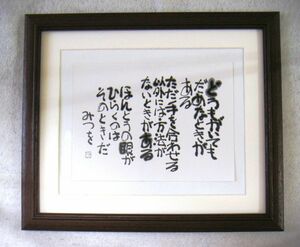 どうもがいても
だめなときが
ある
ただ手を合わせる
以外には方法が
ないときがある
ほんとうの眼が
ひらくのは
そのときだ
みつを